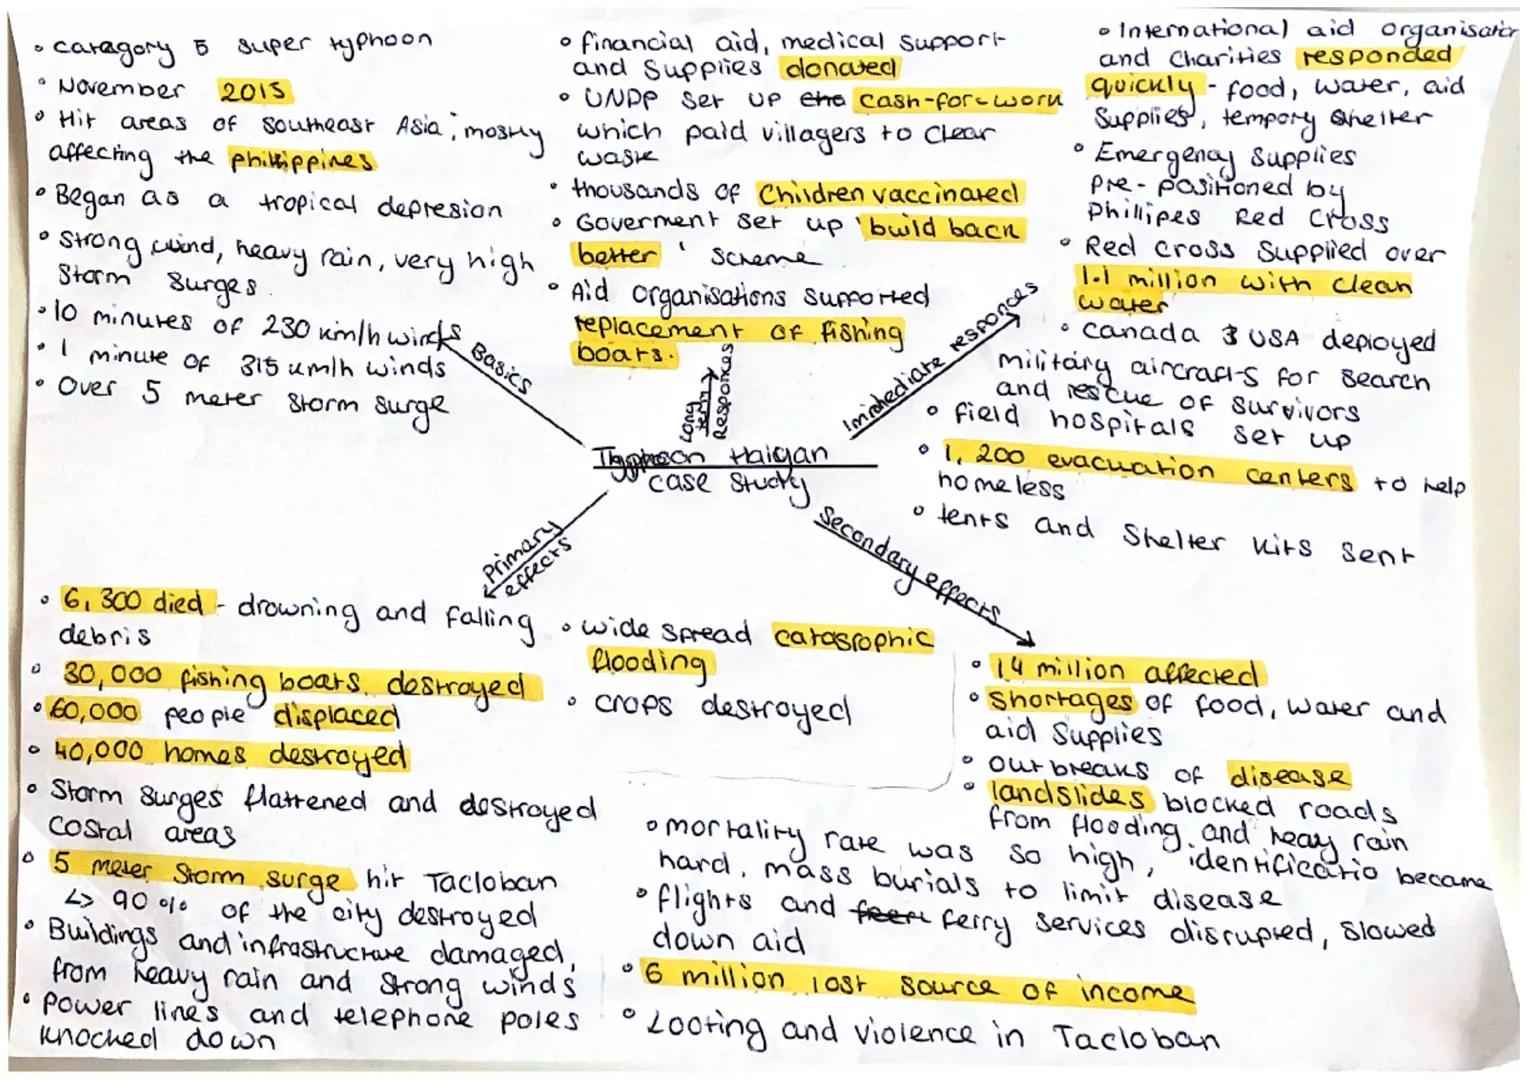 • category 5 super typhoon
• November 2013
• Hit areas of southeast Asia, mostly
affecting the phillippines
• Began as a tropical depresion
• Strong wind, heavy rain, very high
Storm surges.
• 10 minutes of 230 km/h winds
• 1 minute of 315 km/h winds
• Over 5 meter storm surge
Basics
• financial aid, medical support
and supplies donated
• UNDP set up cash-for-work
which paid villagers to clear
waste
• thousands of children vaccinated
• Goverment set up 'build back
better' scheme
• Aid organisations supported
replacement of fishing
boats.
Long
term
Responces
• International aid organisation
and charities responded
quickly - food, water, aid
supplies, tempory shelter
• Emergency supplies
pre-positioned by
Phillipes Red Cross
• Red cross supplied over
1.1 million with clean
water
• Canada & USA deployed
military aircrafts for search
and rescue of survivors
• field hospitals set up
• 1,200 evacuation centers to help
homeless
• tents and shelter kits sent
Immediate responces
Typhoon Haigan
case study
Primary
effects
• 6,300 died - drowning and falling
debris
• 30,000 fishing boats destroyed
• 60,000 people displaced
• 40,000 homes destroyed
• Storm surges flattened and destroyed
costal areas
• 5 meter storm surge hit Tacloban
↳ 90% of the city destroyed
• Buildings and infrastructure damaged,
from heavy rain and strong winds
• Power lines and telephone poles
knocked down
• wide spread catasrophic
flooding
• crops destroyed
Secondary effects
• 14 million affected
• shortages of food, water and
aid supplies
• outbreaks of disease
• landslides blocked roads
from flooding and heavy rain
• mortality rate was so high, identificatio became
hard, mass burials to limit disease
• flights and ferry services disrupted, slowed
down aid
• 6 million lost source of income
• Looting and violence in Tacloban